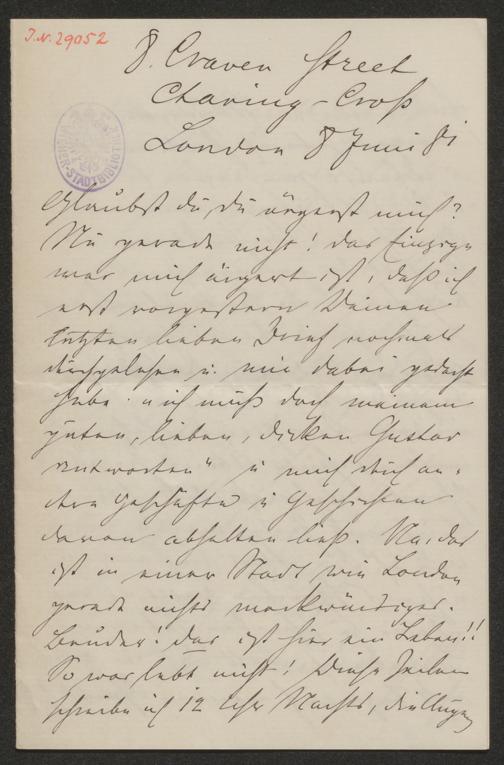 J.N. 29052
8. Craven Street
Charing-Croß
London 8 Juni 81
WIENER STADTBIBLIOTHEK
Glaubst du, du ärgerst mich?
Nu gerade nicht! das Einzige
was mich ärgert ist, daß ich
erst vorgestern Deinen
letzten lieben Brief nochmals
durchgelesen u. mir dabei gedacht
habe: „ich muß doch meinem
guten, lieben, dicken Gustav
antworten" u mich durch an-
dere Geschäfte u Geschichten
davon abhalten ließ. Na, das
ist in einer Stadt wie London
gerade nichts merkwürdiges.
Bruder! das ist hier ein Leben!!
So was lebt nicht! Diese Zeilen
schreibe ich 12 Uhr Nachts, die Augen